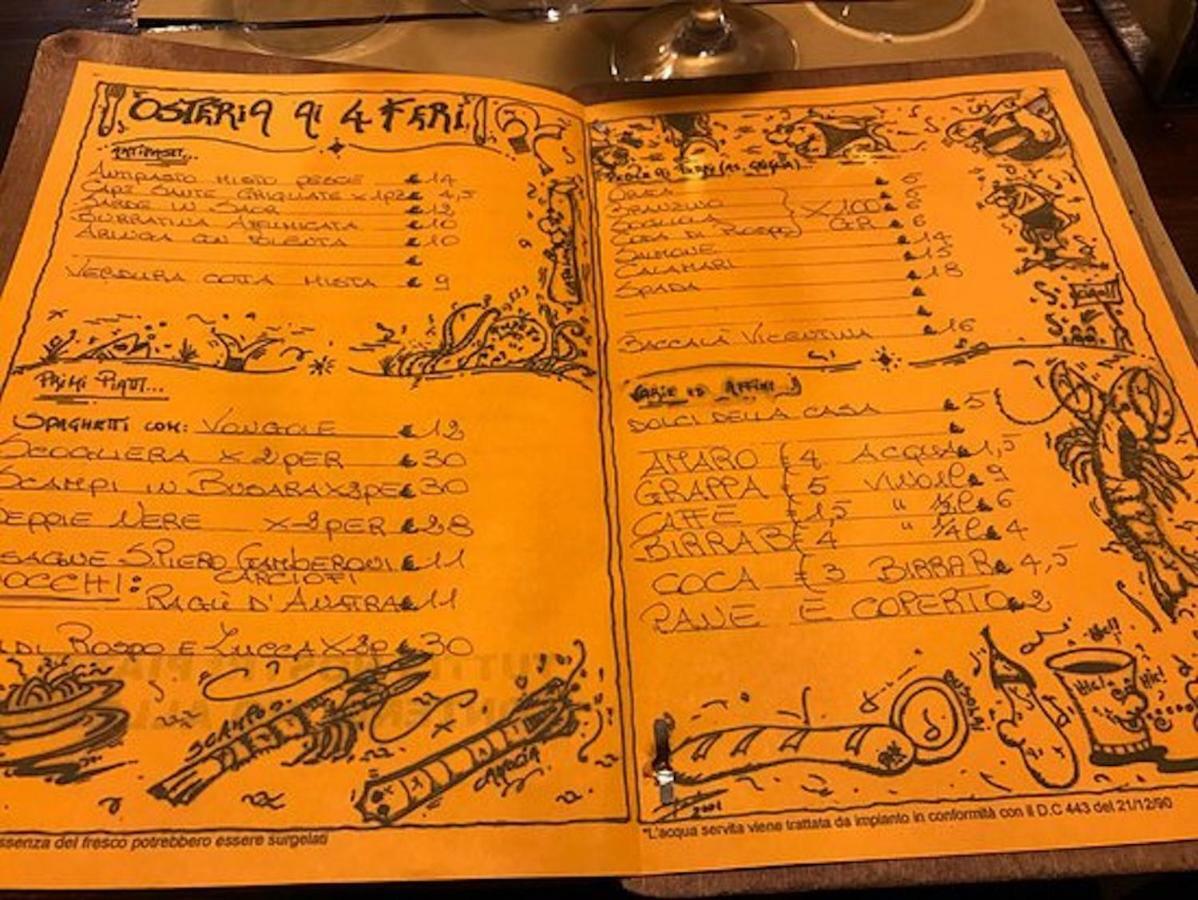 OSTERIA AI 4 FERI
ANTIPASTI...
ANTIPASTO MISTO PESCE € 14
CAPE SANTE GRIGLIATE X 1PZ € 4,5
SARDE IN SAOR € 12
BURRATINA AFFUMICATA € 10
ARINGA CON POLENTA € 10
€
VERDURA COTTA MISTA € 9
PRIMI PIATTI...
SPAGHETTI CON: VONGOLE € 12
SCOGLIERA X 2 PER € 30
SCAMPI IN BUSARA X 2 PE € 30
SEPPIE NERE X 2 PER € 28
SAGNE S.PIERO GAMBERONI € 11
CARCIOFI
OCCHI: RAGÙ D'ANATRA € 11
DI ROSPO E ZUCCA X 2P € 30
SCAMPO
CANOCIA
ssenza del fresco potrebbero essere surgelati
ORATA € 6
BRANZINO € 6
SOGLIOLA X 100 GR € 6
CODA DI ROSPO € 6
SALMONE € 14
CALAMARI € 15
SPADA € 18
BACCALÀ VICENTINA € 16
VARIE ED AFFINI...
DOLCI DELLA CASA € 5
€
AMARO € 4 ACQUA € 1,5
GRAPPA € 5 VINO 1L € 9
CAFFÈ € 1,5 " 1/2 L € 6
BIRRA B € 4 " 1/4 L € 4
COCA € 3 BIRRA R € 4,5
PANE E COPERTO € 2
PAX
HIC!
HIC! HIC!
2001
*L'acqua servita viene trattata da impianto in conformità con il D.C 443 del 21/12/90